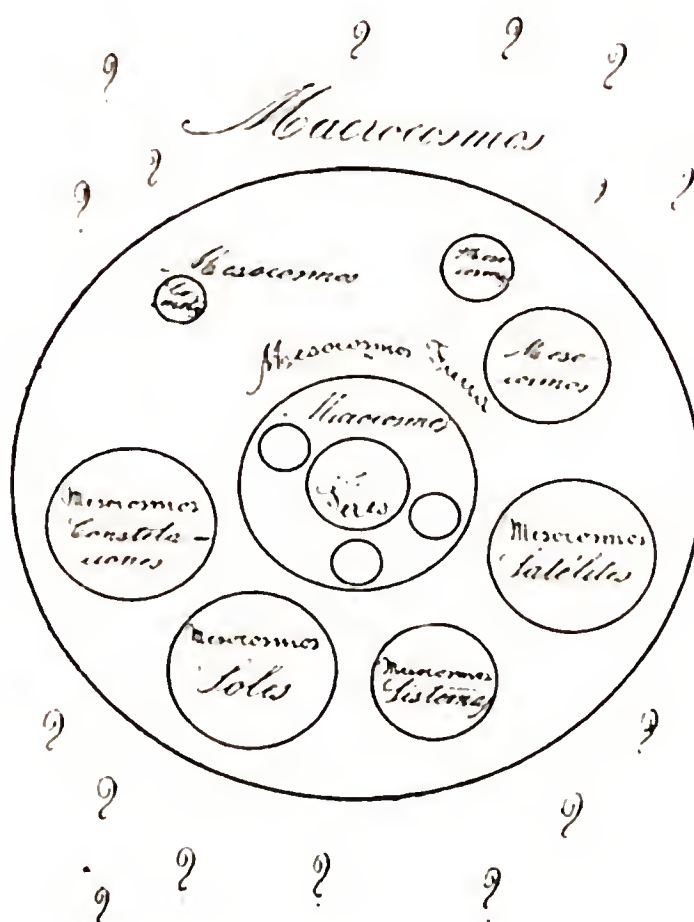 ? ? ? ?
Macrocosmos
? ? ?
Mesocosmos
Mesocosmos
Meso-
cosmos
Mesocosmos Tierra
Microcosmos
Seres
Mesocosmos
Constela-
ciones
Mesocosmos
Satélites
Mesocosmos
Soles
Mesocosmos
Sistemas
? ?
? ?
? ? ?
?